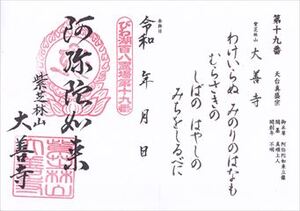 第十九番
天台真盛宗
紫芝林山 大善寺
御本尊 阿弥陀如来立像
開基 真盛上人
開創年 不明
わけいらぬ みのりのはなも
むらさきの
しばの はやしの
みちをしるべに
奉拝日
令和 年 月 日
びわ湖百八霊場第十九番
阿弥陀如来
紫芝林山
大善寺